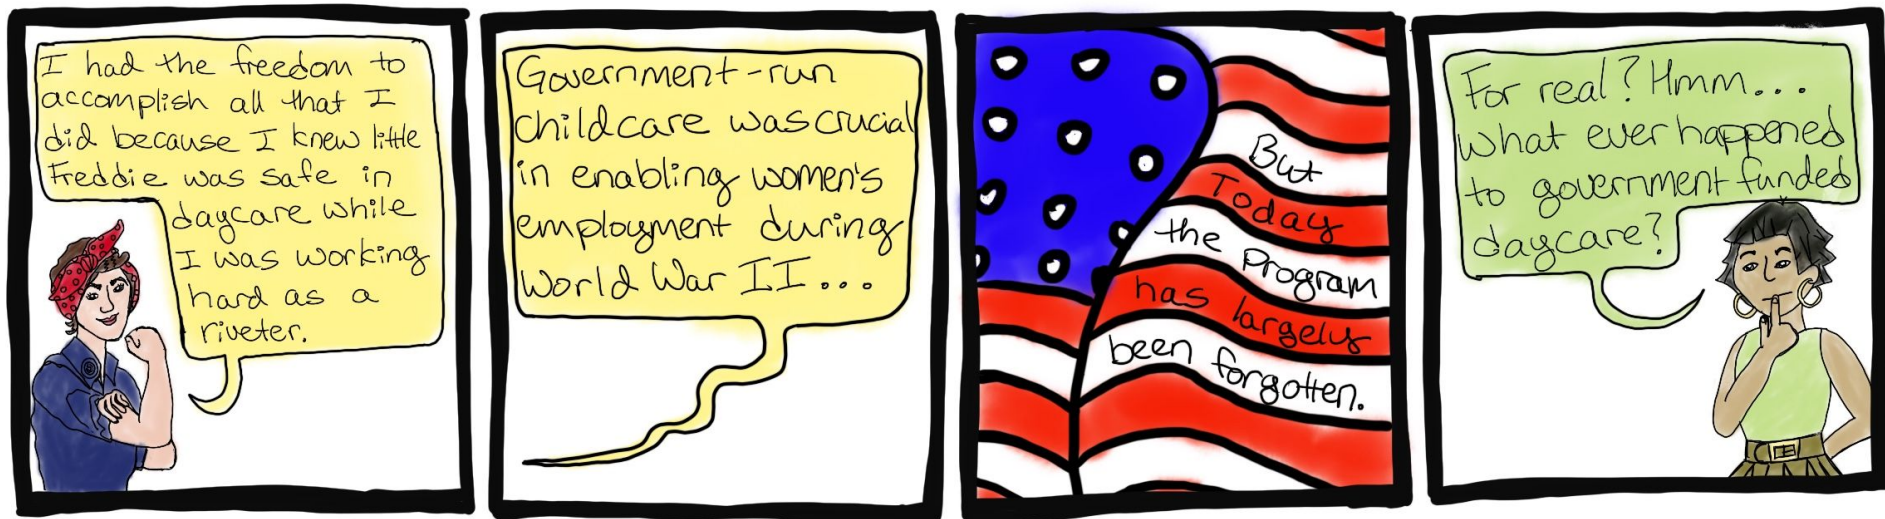 I had the freedom to
accomplish all that I
did because I knew little
Freddie was safe in
daycare while
I was working
hard as a
riveter.
Government-run
childcare was crucial
in enabling women's
employment during
World War II...
But
Today
the Program
has largely
been forgotten.
For real? Hmm...
what ever happened
to government funded
daycare?